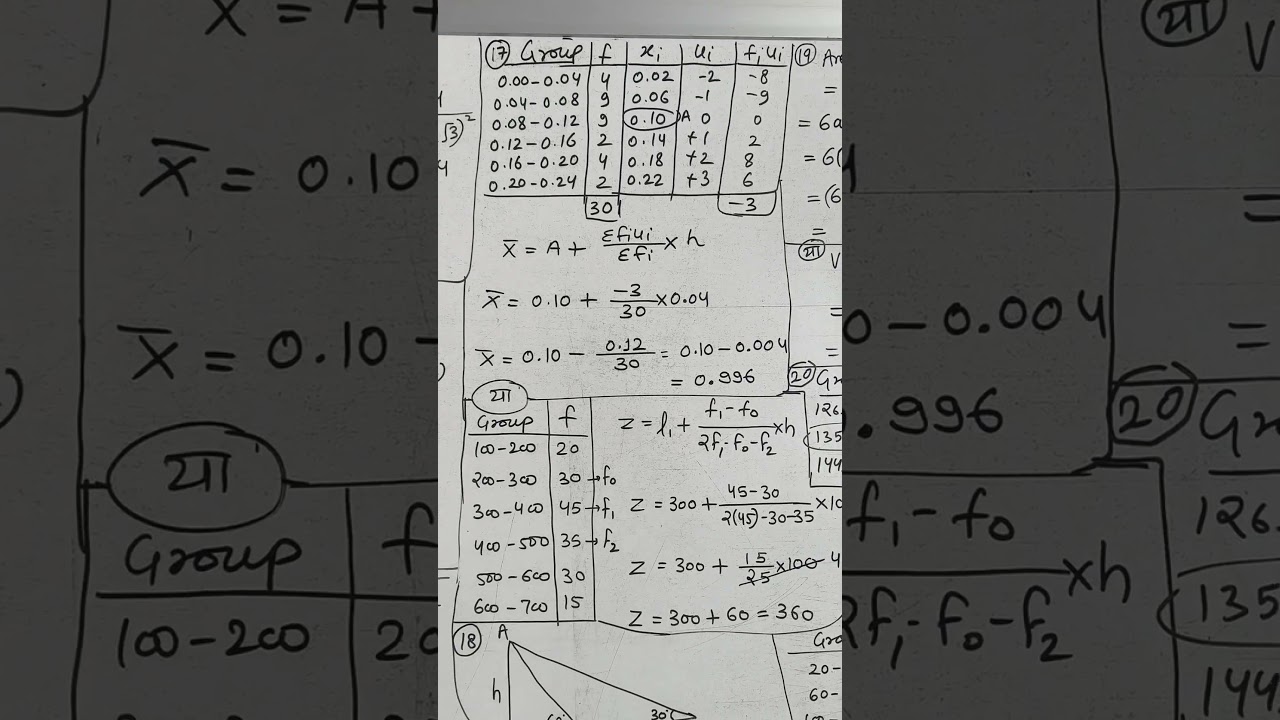 17 Group f xi ui fiui
0.00-0.04 4 0.02 -2 -8
0.04-0.08 9 0.06 -1 -9
0.08-0.12 9 0.10 A 0 0
0.12-0.16 2 0.14 +1 2
0.16-0.20 4 0.18 +2 8
0.20-0.24 2 0.22 +3 6
30 -3
X̄ = A + Σfiui/Σfi × h
X̄ = 0.10 + -3/30 × 0.04
X̄ = 0.10 - 0.12/30 = 0.10 - 0.004
= 0.996
या
Group f
100-200 20
200-300 30 → f₀
300-400 45 → f₁
400-500 35 → f₂
500-600 30
600-700 15
Z = l₁ + f₁-f₀/2f₁-f₀-f₂ × h
Z = 300 + 45-30/2(45)-30-35 × 10
Z = 300 + 15/25 × 100 4
Z = 300 + 60 = 360
18 A
h
30°
19
= 6a
= 6(
= (6
=
या
V
=
=
20 Gr
126.
135
144
Gro
20-
60-
X = A +
X̄ = 0.10
X̄ = 0.10 -
या
Group f
100-200 20
√3)²
या
V
=
0 - 0.004
.996
=
20 Gr
f₁ - f₀
2f₁ - f₀ - f₂ × h
126.
135
144